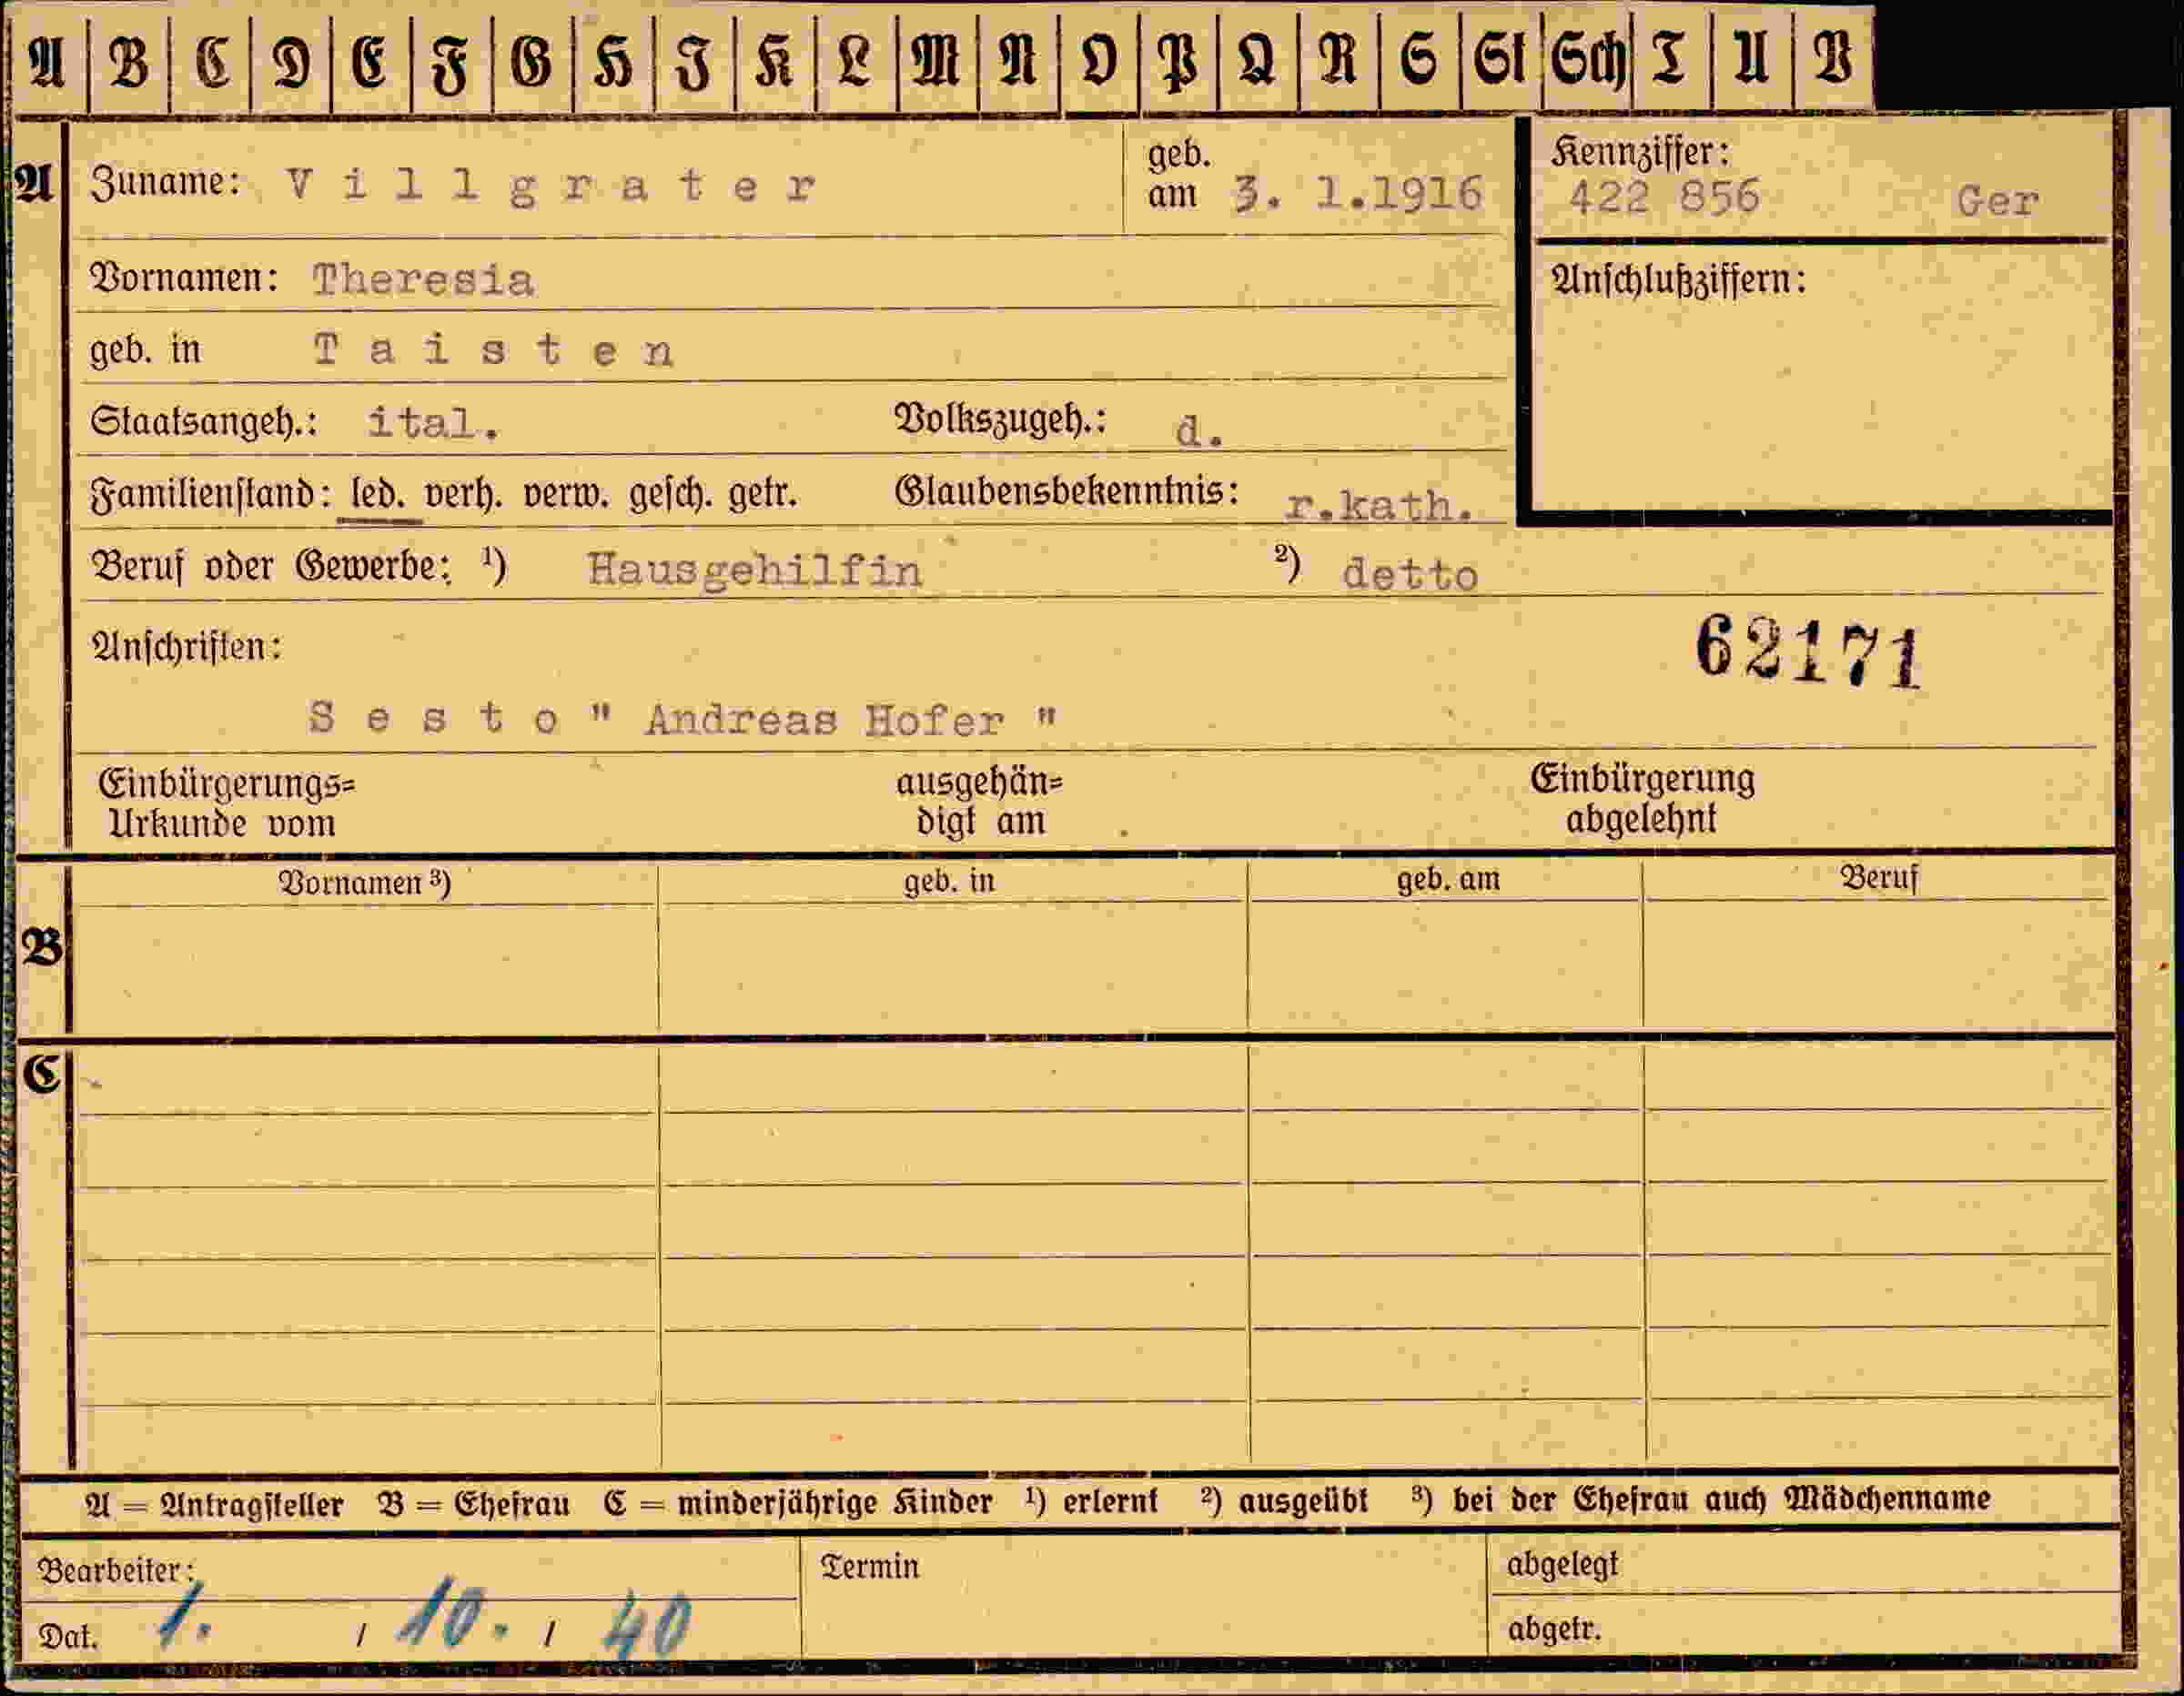 A B C D E F G H I K L M N O P Q R S St Sch T U V
A Zuname: Villgrater geb. am 3. 1.1916 Kennziffer: 422 856 Ger
Vornamen: Theresia Anschlußziffern:
geb. in Taisten
Staatsangeh.: ital. Volkszugeh.: d.
Familienstand: led. verh. verw. gesch. getr. Glaubensbekenntnis: r.kath.
Beruf oder Gewerbe: 1) Hausgehilfin 2) detto
Anschriften: 62171
Sesto " Andreas Hofer "
Einbürgerungs= ausgehän= Einbürgerung
Urkunde vom digt am abgelehnt
Vornamen 3) geb. in geb. am Beruf
B
C
A = Antragsteller B = Ehefrau C = minderjährige Kinder 1) erlernt 2) ausgeübt 3) bei der Ehefrau auch Mädchenname
Bearbeiter: Termin abgelegt
Dat. 1. / 10. / 40 abgetr.